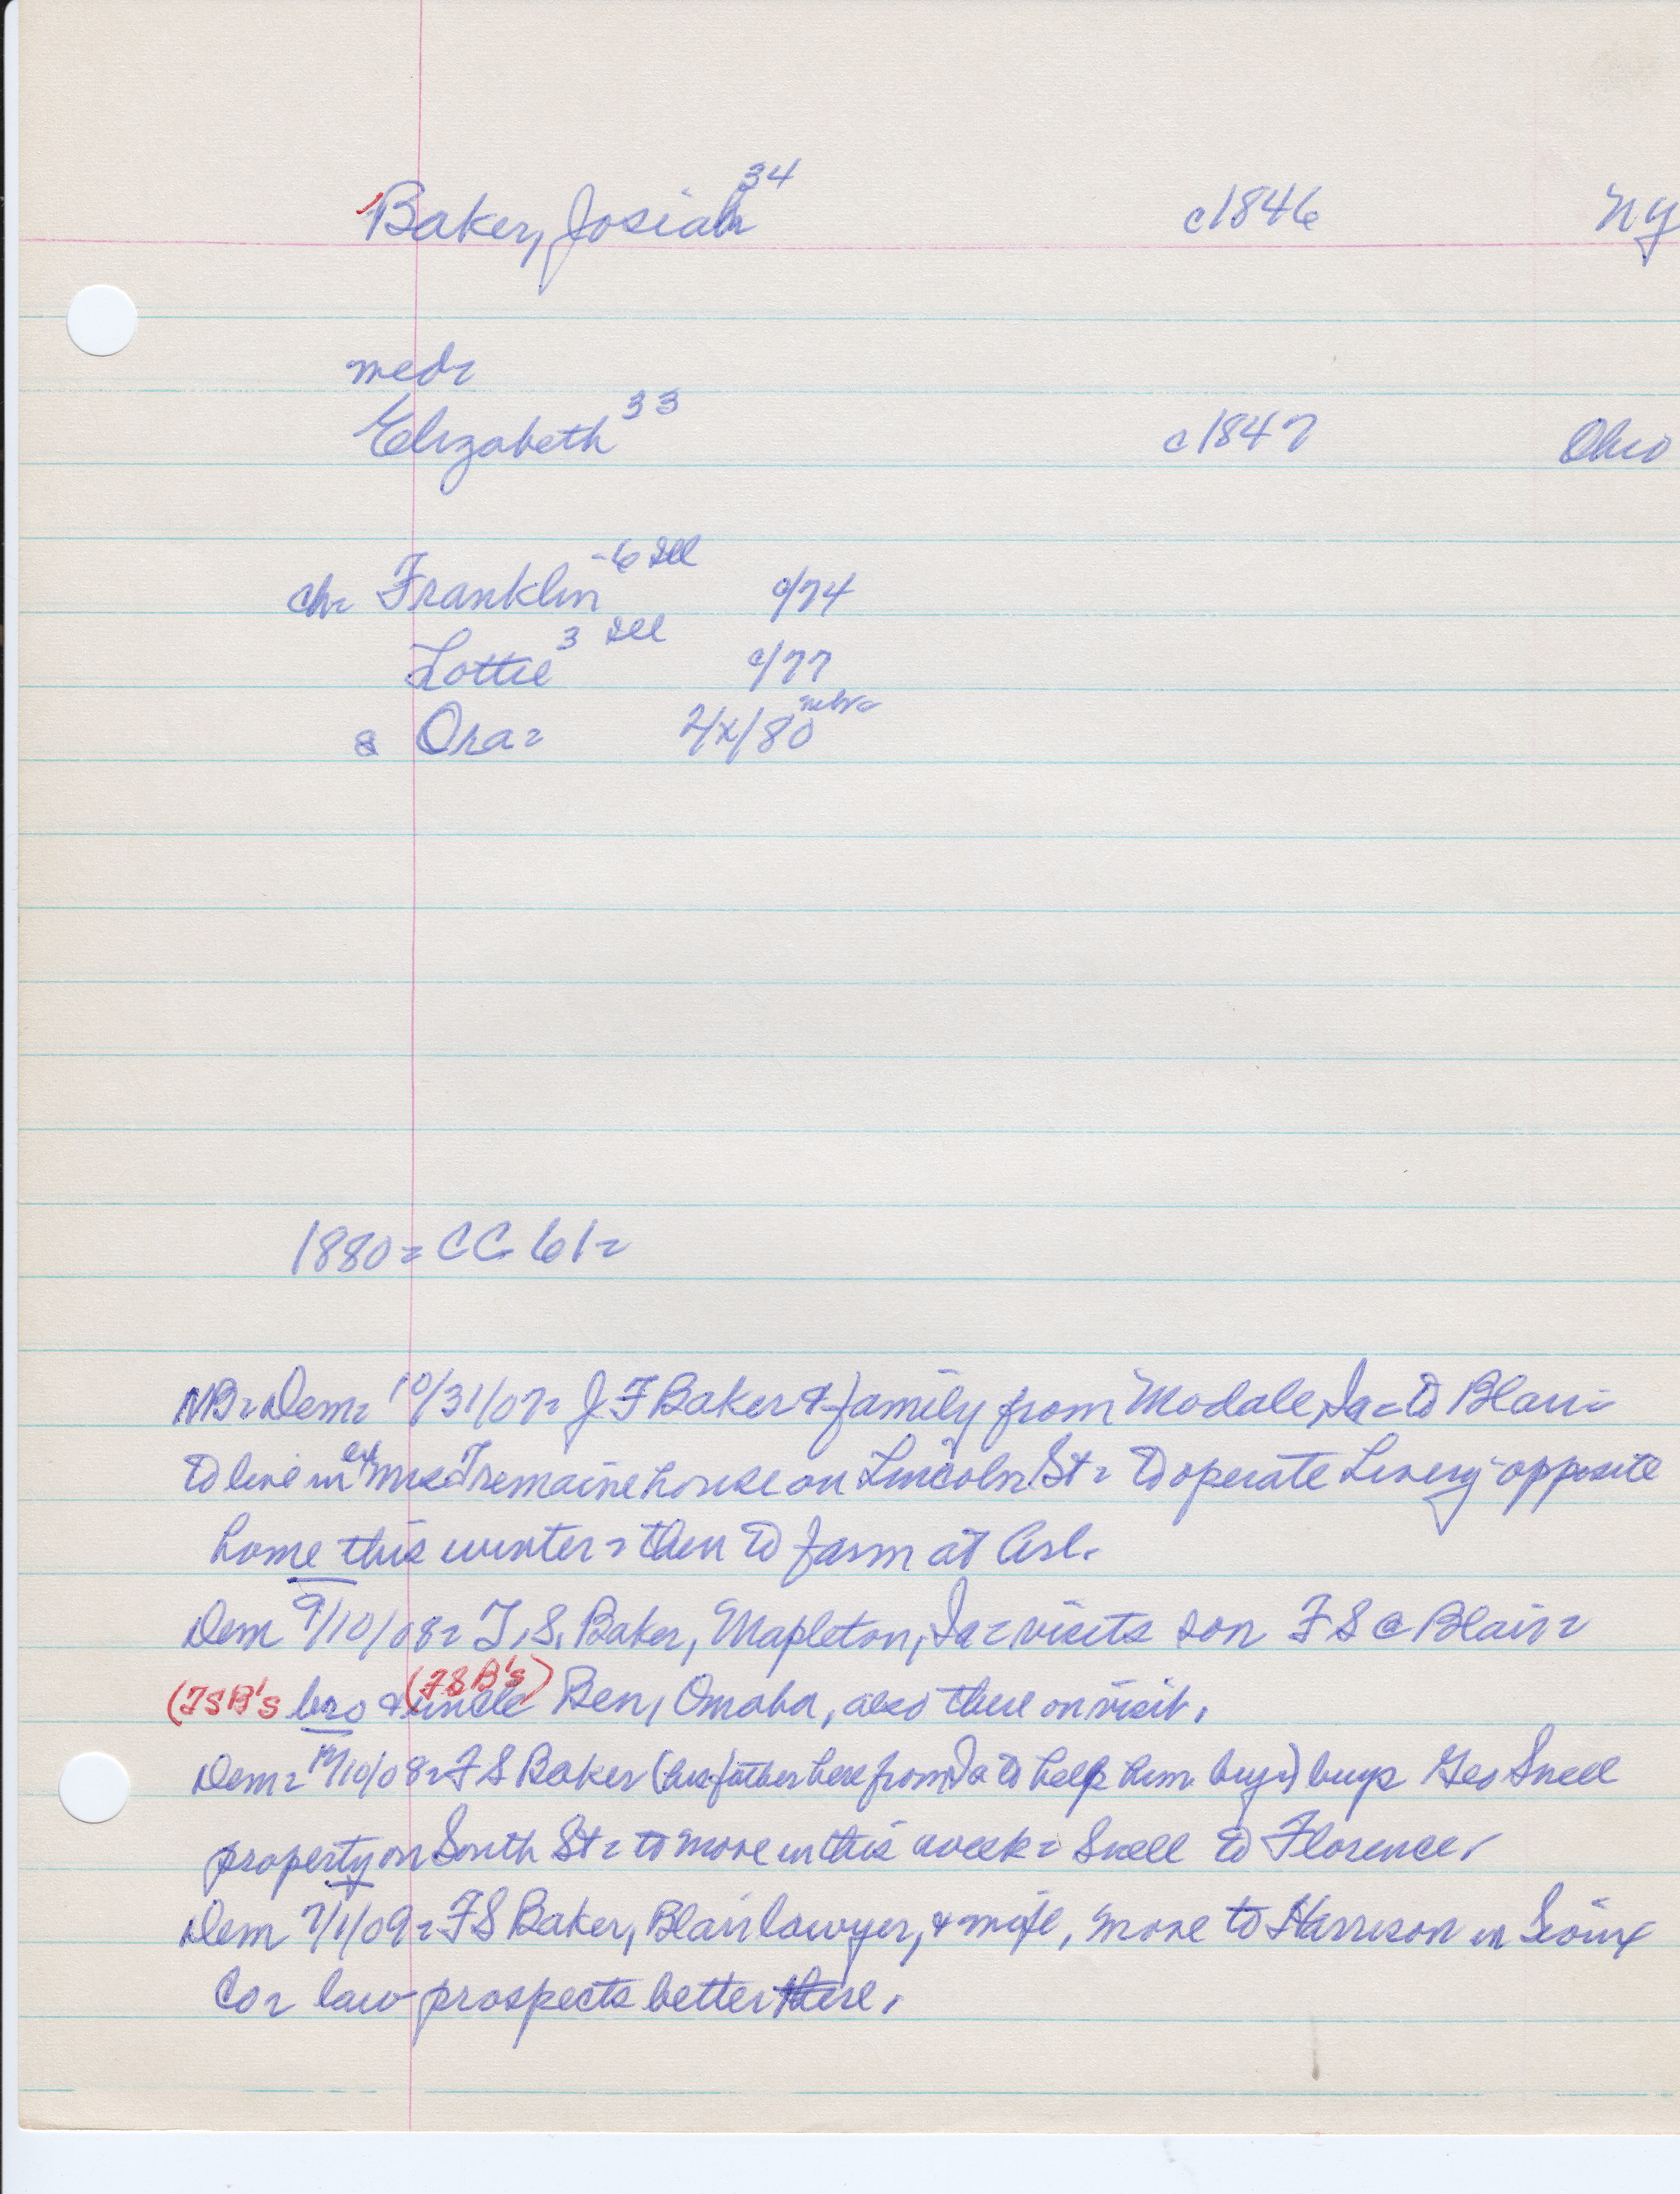 Baker, Josiah 34 c1846 NY
med=
Elizabeth 33 c1847 Ohio
ch= Franklin - 6 Ill c/74
Lottie 3 Ill c/77
& Ora= 2/x/80 nebr=
1880= CC 61=
NB= Dem= 10/31/07= J F Baker & family from Modale, Ia= to Blair=
to live in Mrs Tremaine house on Lincoln St= to operate Livery opposite
home this winter= then to farm at Arl.
Dem 9/10/08= T. S. Baker, Mapleton, Ia= visits son F S @ Blair=
(FSB's bro & (FSB's) uncle Ben, Omaha, also there on visit.
Dem= 12/10/08= F S Baker (his father here from Ia to help him buy=) buys Geo Snell
property on South St= to move in this week= Snell to Florence.
Dem 7/1/09= F S Baker, Blair lawyer, & wife, move to Harrison in Sioux
Co= law prospects better there.